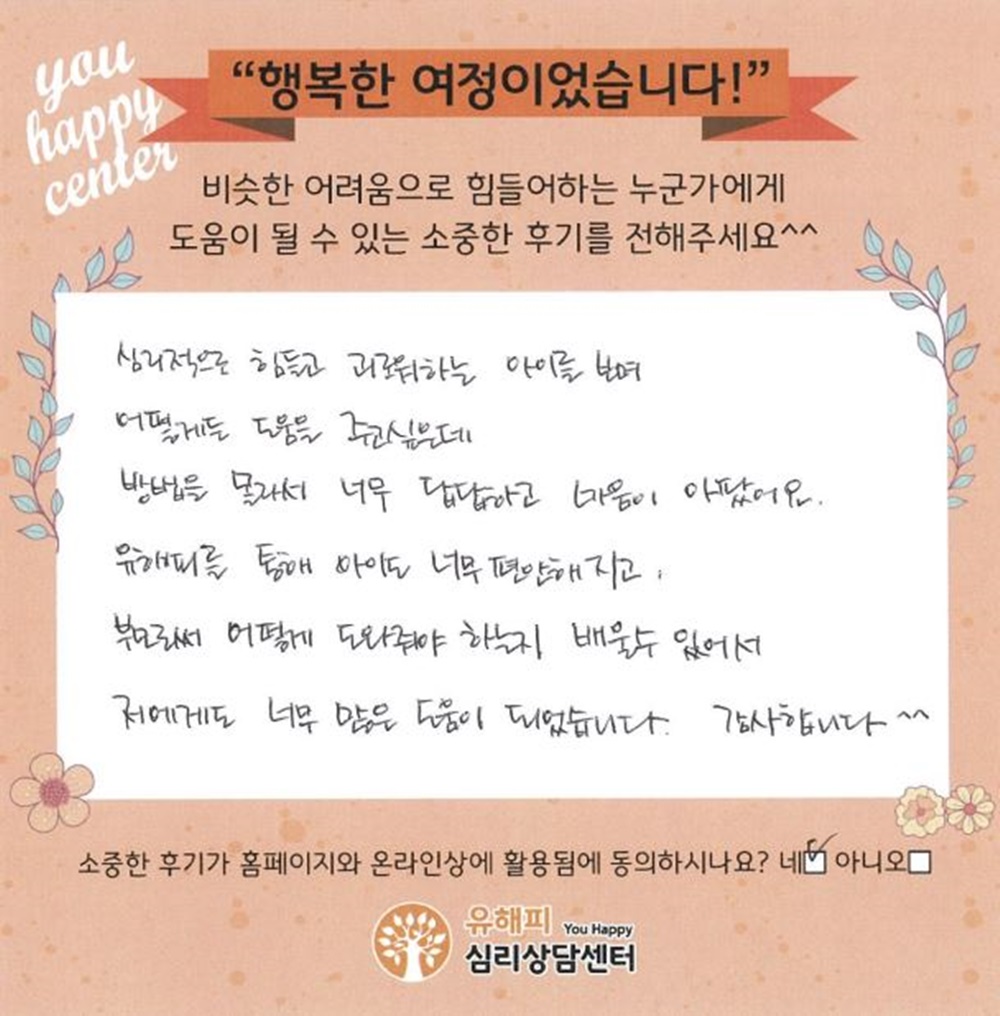 you
happy
center
“행복한 여정이었습니다!”
비슷한 어려움으로 힘들어하는 누군가에게
도움이 될 수 있는 소중한 후기를 전해주세요^^
심리적으로 힘들고 괴로워하는 아이를 보며
어떻게든 도움을 주고싶은데
방법을 몰라서 너무 답답하고 마음이 아팠어요.
유해피를 통해 아이도 너무 편안해지고,
부모로써 어떻게 도와줘야 하는지 배울수 있어서
저에게도 너무 많은 도움이 되었습니다. 감사합니다 ^^
소중한 후기가 홈페이지와 온라인상에 활용됨에 동의하시나요? 네☑ 아니오☐
유해피 You Happy
심리상담센터